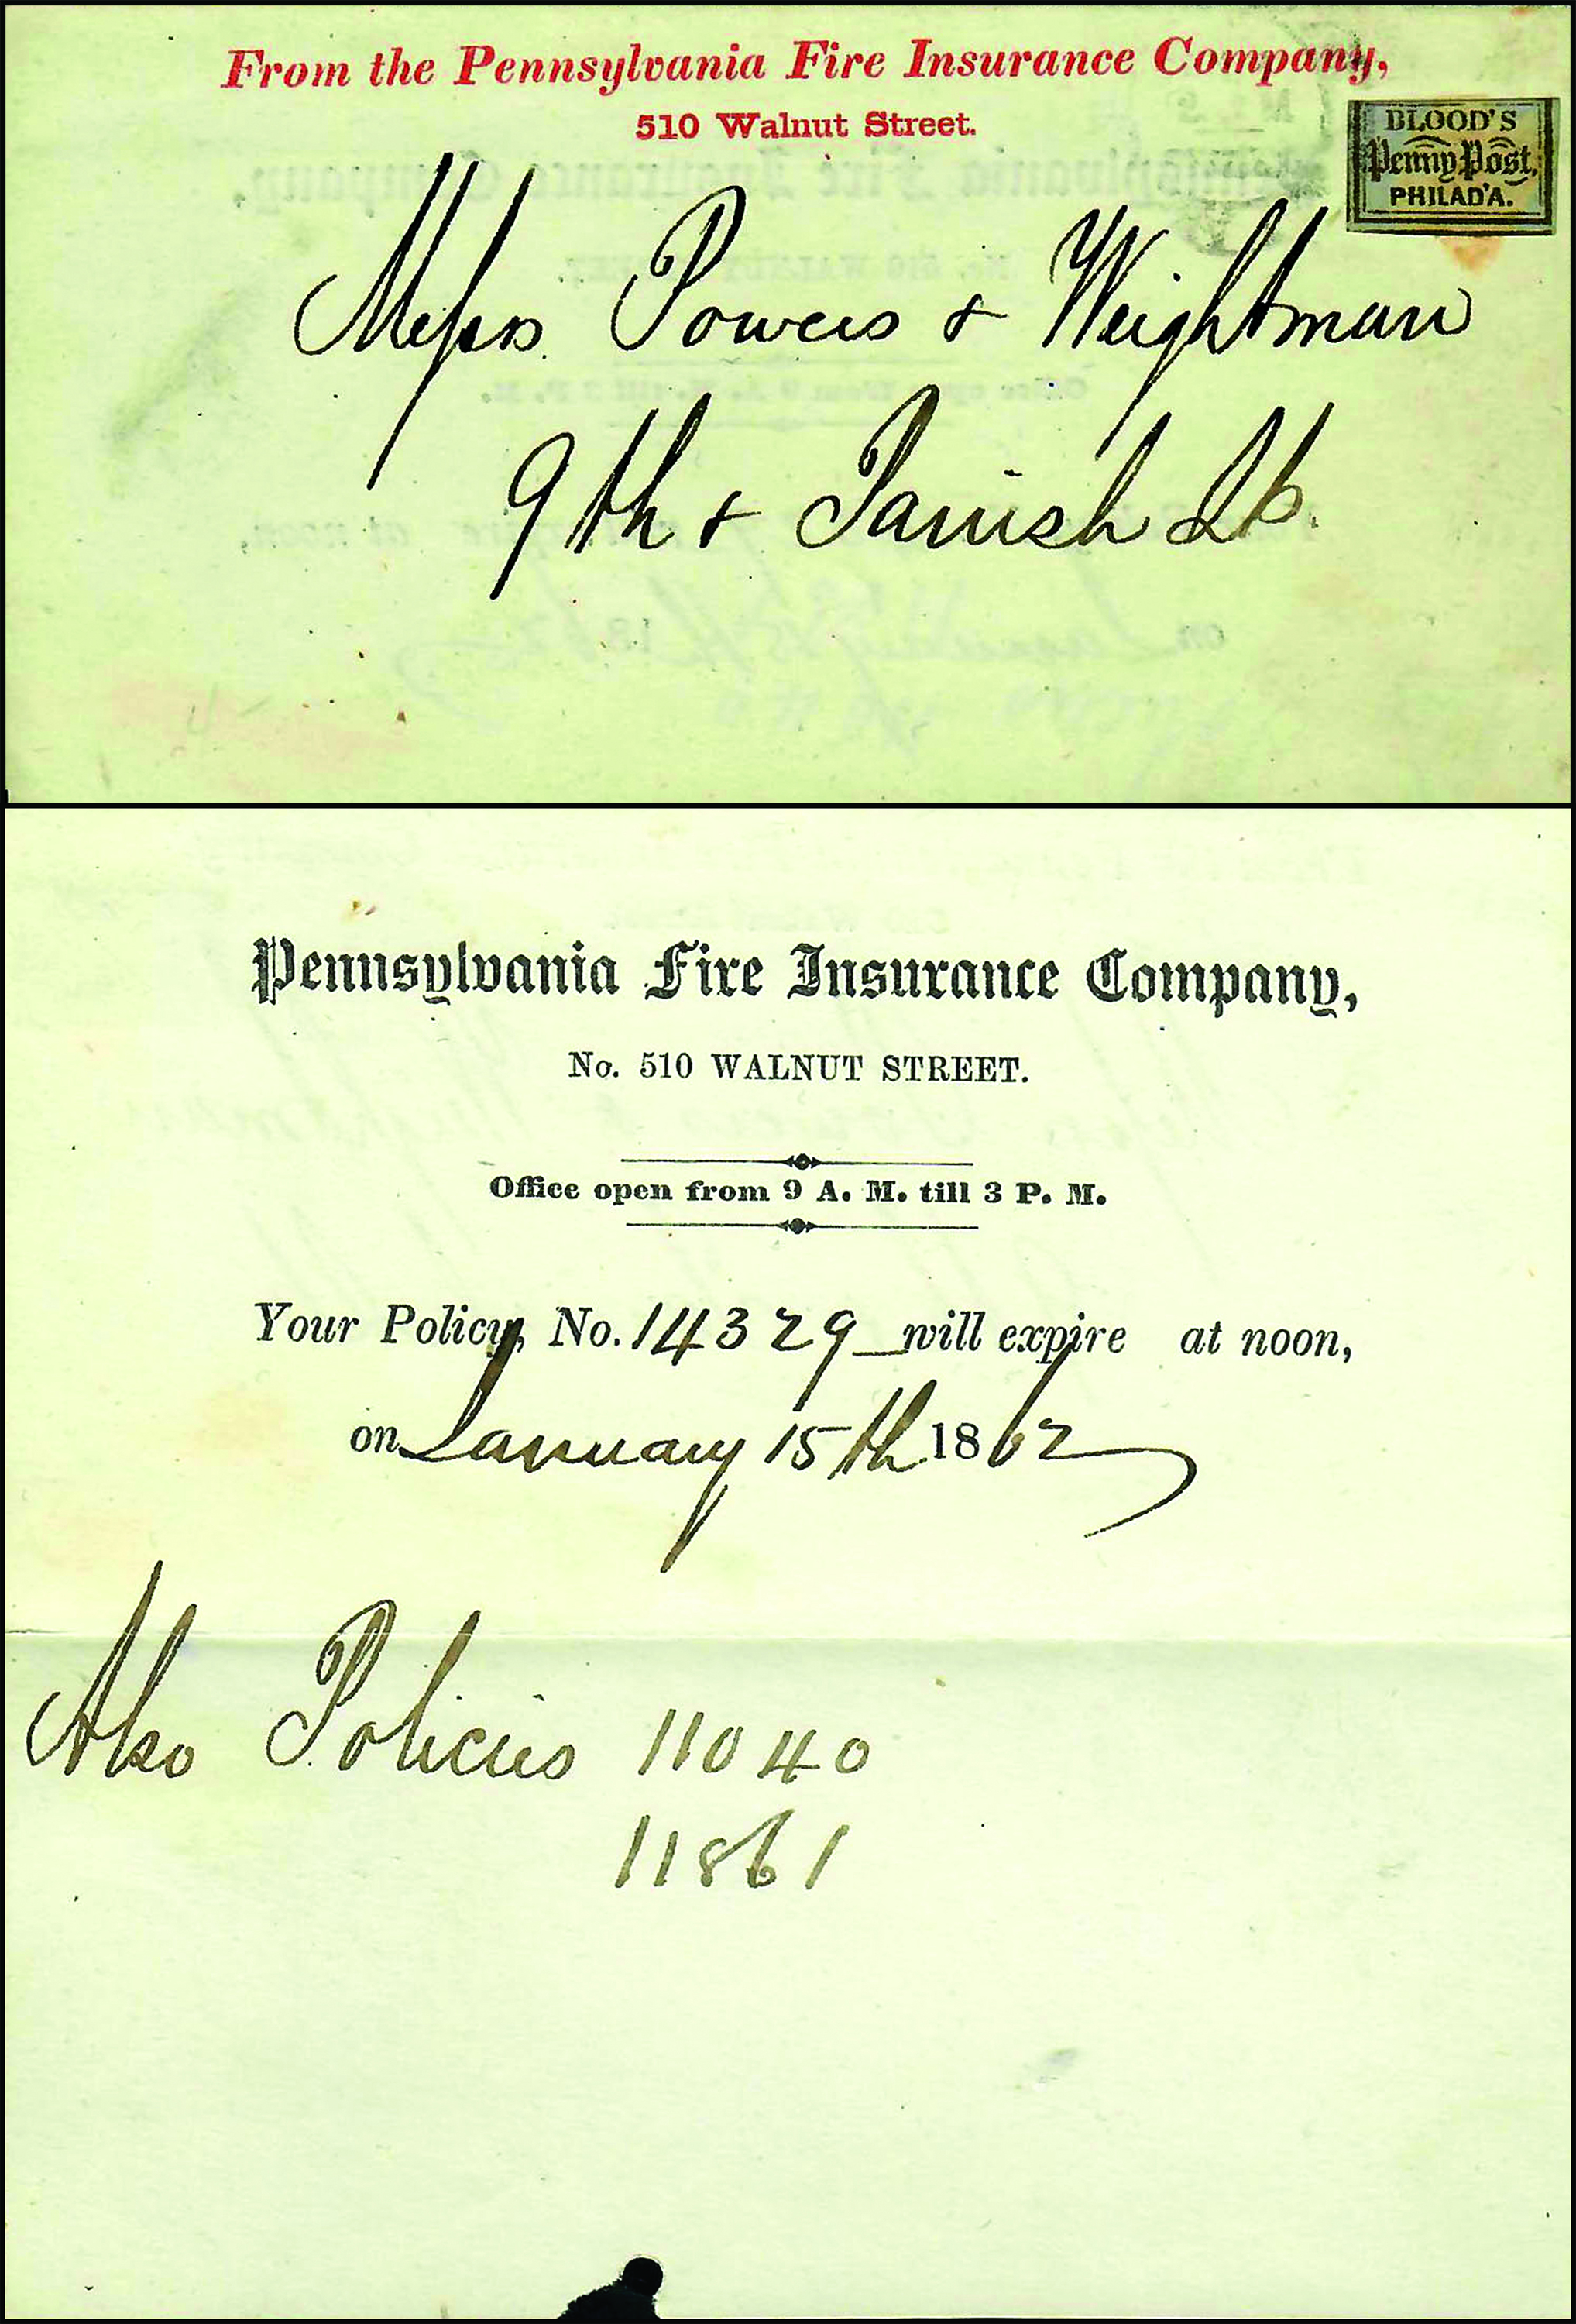 From the Pennsylvania Fire Insurance Company,
510 Walnut Street.
BLOOD'S
Penny Post,
PHILAD'A.
Messrs. Powers & Weightman
9th & Parrish St.
Pennsylvania Fire Insurance Company,
No. 510 WALNUT STREET.
Office open from 9 A. M. till 3 P. M.
Your Policy, No. 14329 will expire at noon,
on January 15th 1862
Also Policies 11040
11861